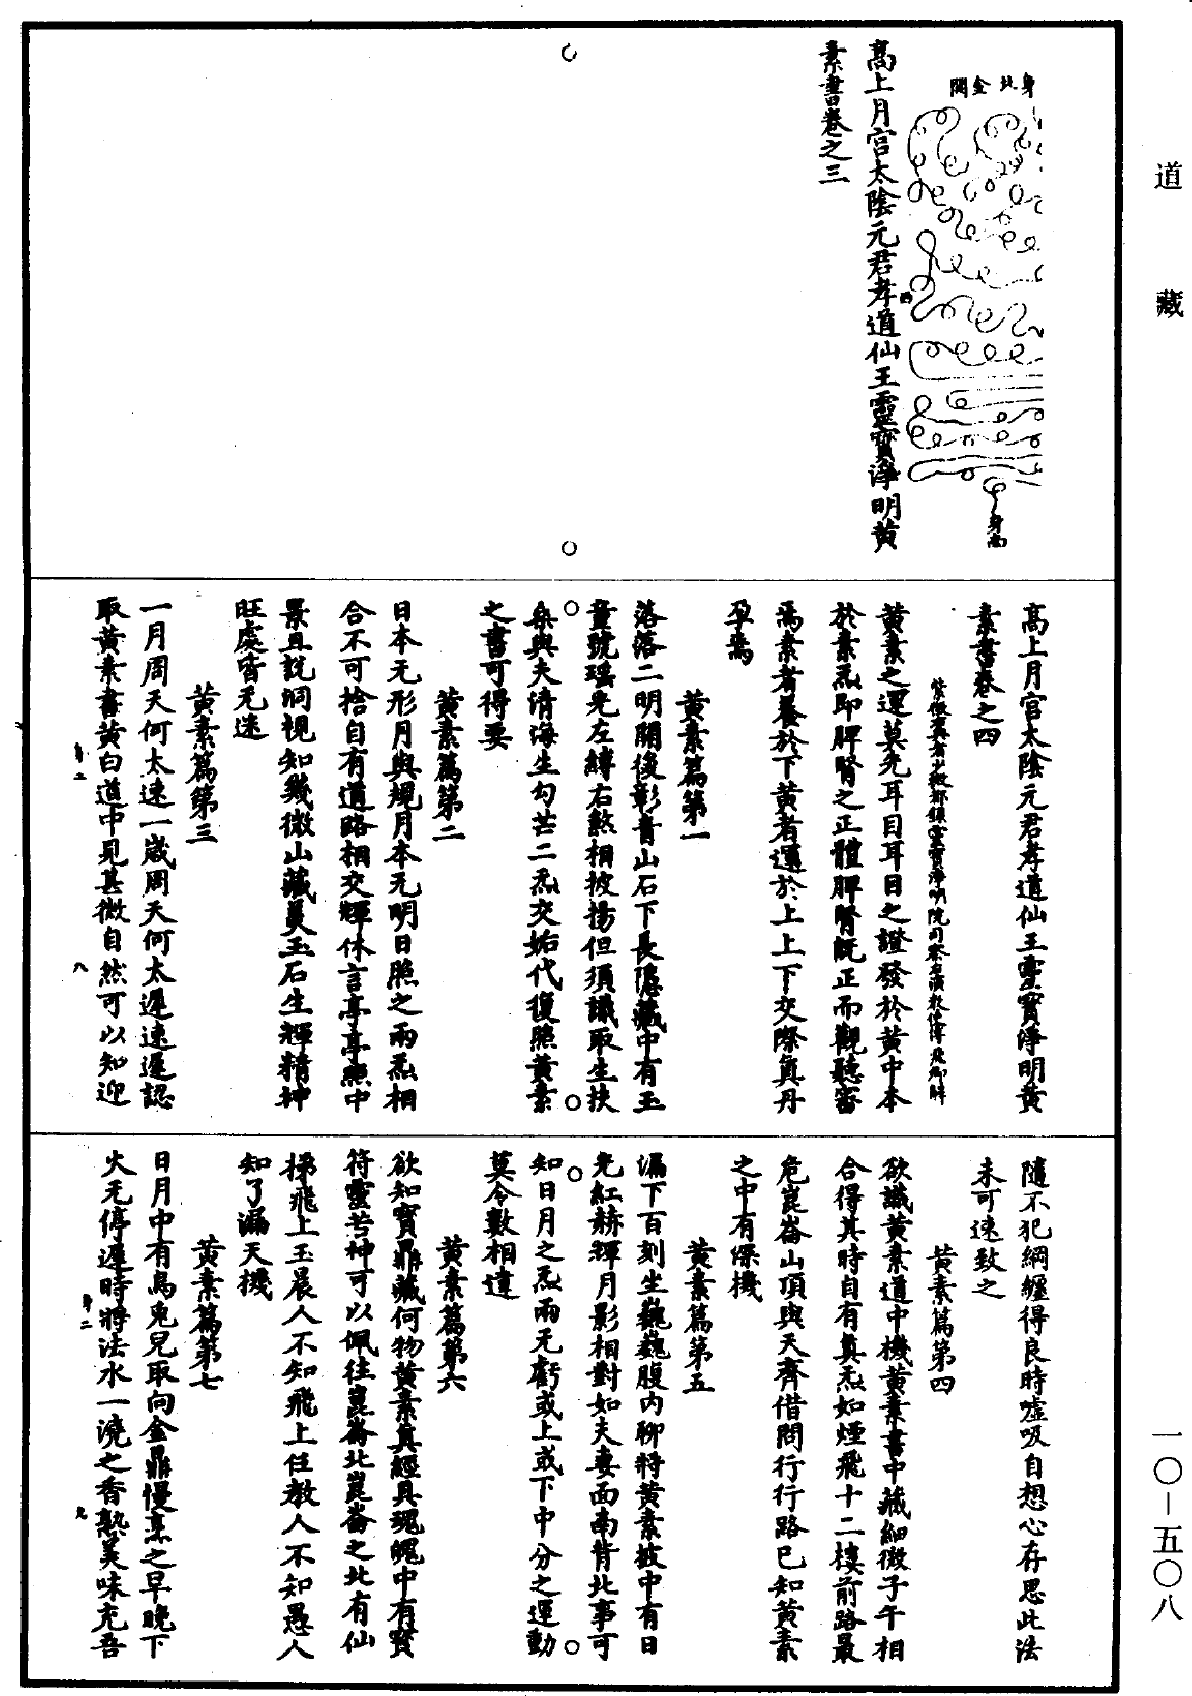 道藏
身北金闕
身南
高上月宮太陰元君孝道仙王靈寶淨明黃
素書卷之三
高上月宮太陰元君孝道仙王靈寶淨明黃
素書卷之四
黃素之運莫先耳目耳目之證發於黃中本
於素炁即脾腎之正體脾腎既正而觀聽審
焉素者養於下黃者運於上上下交際真丹
孕焉
黃素篇第一
落落二明開復彰青山石下長隱藏中有玉
童號瑤光左縛右煞相披揚但須識取生扶
桑與夫清海生勾芒二炁交姤代復照黃素
之書可得要
黃素篇第二
日本无形月與規月本无明日照之兩炁相
合不可捨自有道路相交輝休言亭亭照中
景且說洞視知幾微山藏美玉石生輝精神
旺處皆无迷
黃素篇第三
一月周天何太速一歲周天何太遲速遲認
取黃素書黃白道中見甚微自然可以知迎
隨不犯綱纏得良時噓吸自想心存思此法
未可速致之
黃素篇第四
欲識黃素道中機黃素書中藏細微子午相
合得其時自有真炁如煙飛十二樓前路最
危崑崙山頂與天齊借問行行路已知黃素
之中有深機
黃素篇第五
漏下百刻坐巍巍腹內聊將黃素披中有日
光紅赫輝月影相對如夫妻面南背北事可
知日月之炁兩无虧或上或下中分之運動
莫令數相違
黃素篇第六
欲知寶鼎藏何物黃素真經具瑰魄中有寶
符靈芝神可以佩往崑崙北崑崙之北有仙
梯飛上玉晨人不知飛上任教人不知愚人
知了漏天機
黃素篇第七
日月中有烏兔兒取向金鼎慢烹之早晚下
火无停遲時將法水一澆之香熟美味充吾
一〇—五〇八